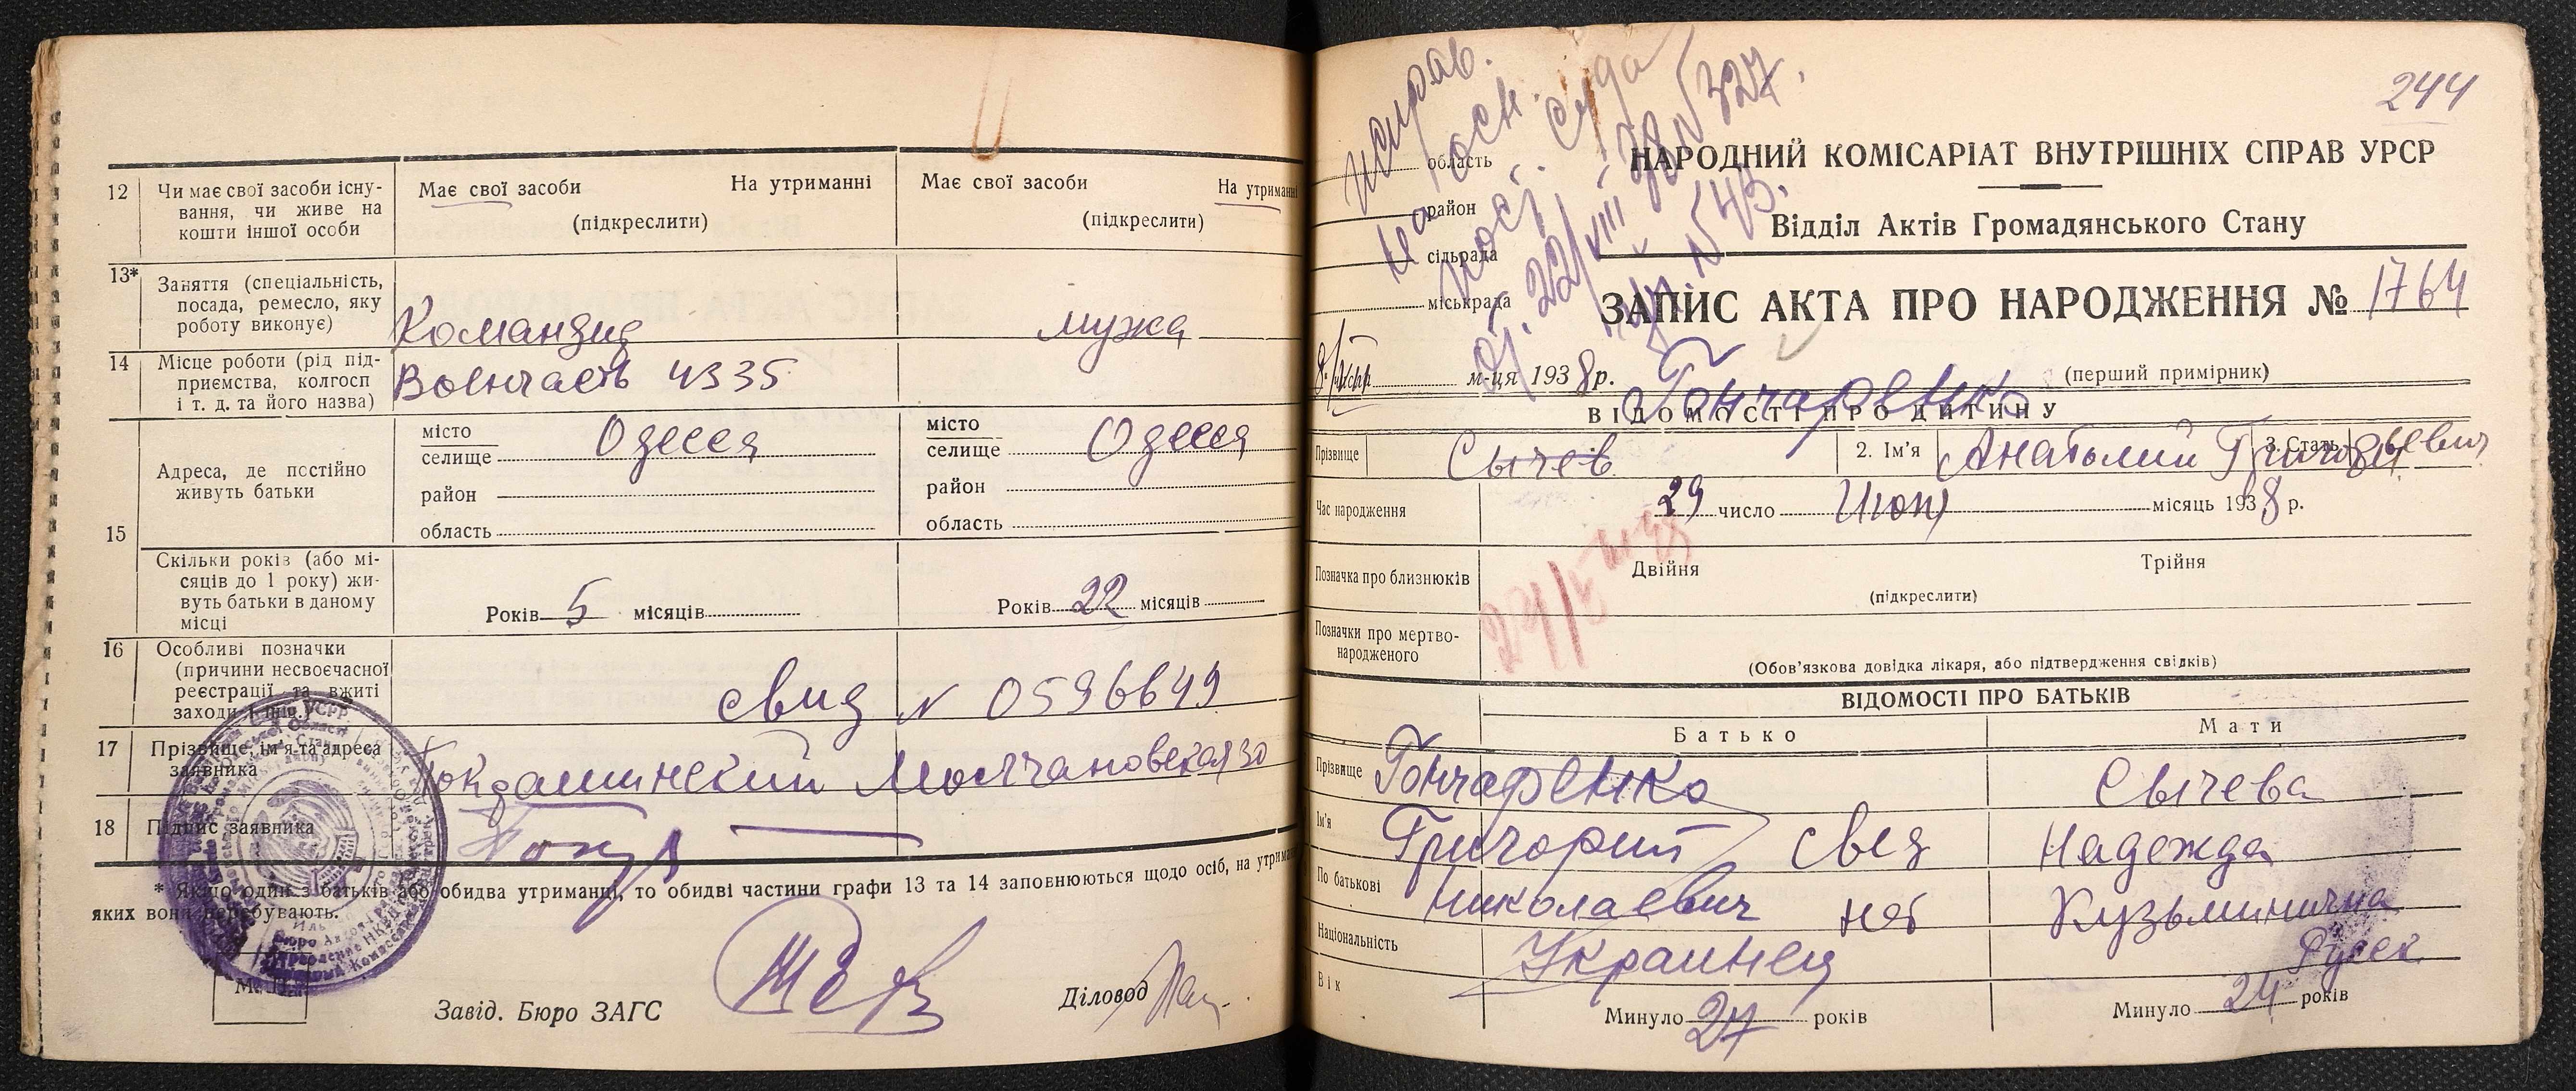 12 Чи має свої засоби існу-
вання, чи живе на
кошти іншої особи
Має свої засоби На утриманні
(підкреслити)
Має свої засоби На утриманні
(підкреслити)
13* Заняття (спеціальність,
посада, ремесло, яку
роботу виконує)
Командир
мужа
14 Місце роботи (рід під-
приємства, колгосп
і т. д. та його назва)
Воєнчасть 4335
15 Адреса, де постійно
живуть батьки
місто
селище Одесса
район
область
місто
селище Одесса
район
область
Скільки років (або мі-
сяців до 1 року) жи-
вуть батьки в даному
місці
Років 5 місяців
Років 22 місяців
16 Особливі позначки
(причини несвоєчасної
реєстрації та вжиті
заходи і інш.)
свид N 0596649
17 Прізвище, ім'я та адреса
заявника
Молчановская 30
18 Підпис заявника
* Якщо один з батьків або обидва утриманці, то обидві частини графи 13 та 14 заповнюються щодо осіб, на утриманні
яких вони перебувають.
М. П.
Завід. Бюро ЗАГС
Діловод
244
исправ.
на осн.
пост. суда
от 22/VIII 38 N 327.
N 43.
область
район
сільрада
міськрада
НАРОДНИЙ КОМІСАРІАТ ВНУТРІШНІХ СПРАВ УРСР
Відділ Актів Громадянського Стану
ЗАПИС АКТА ПРО НАРОДЖЕННЯ № 1764
м-ця 1938 р.
(перший примірник)
Гончаренко
ВІДОМОСТІ ПРО ДИТИНУ
Прізвище Сычев 2. Ім'я Анатолий Григорьевич 3. Стать
Час народження 29 число Июня місяць 1938 р.
Позначка про близнюків
Двійня Трійня
(підкреслити)
Позначки про мертво-
народженого
(Обов'язкова довідка лікаря, або підтвердження свідків)
ВІДОМОСТІ ПРО БАТЬКІВ
Батько Мати
Прізвище Гончаренко Сычева
Ім'я Григорий свед Надежда
По батькові Николаевич нет Кузьминична
Національність Украинец Русск.
Вік Минуло 27 років Минуло 24 років